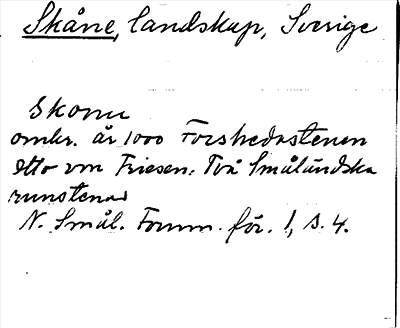 Skåne, landskap, Sverige
Skonu
omkr. år 1000 Forshedastenen
Otto von Friesen: Två Småländska
runstenar
N. Smål. Fornm. för. 1, s. 4.